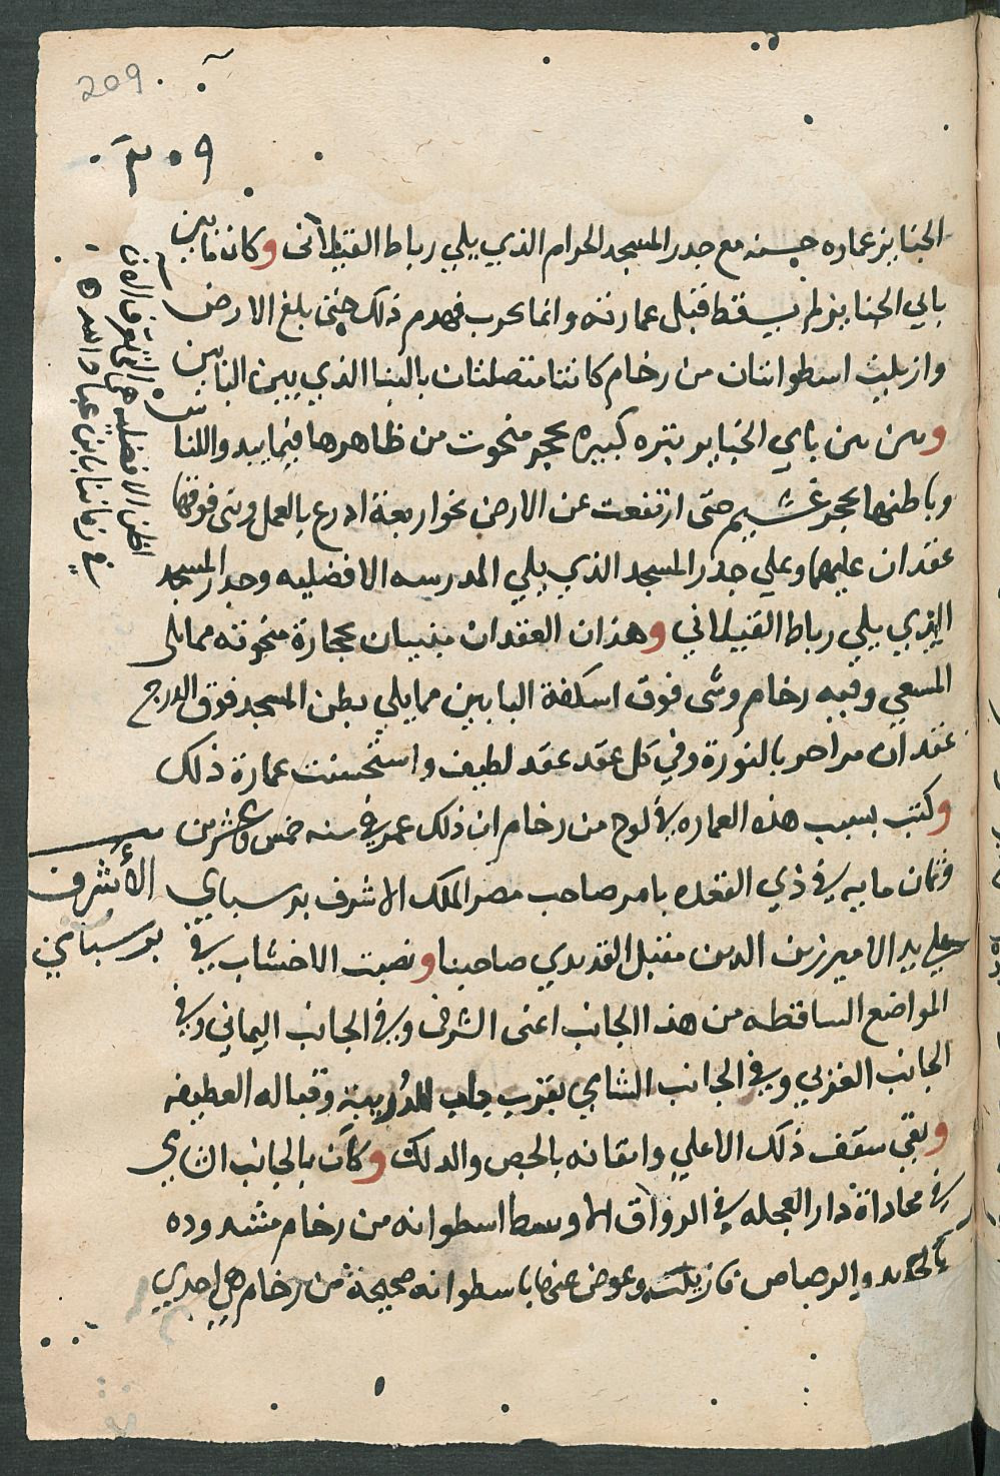 209
٣٠٩
الجنايز عماره حسنه مع جدر المسجد الحرام الذي يلي رباط القيلانى وكان ما بين
بابي الجنايز لم يسقط قبل عمارته وانما خرب فهدم ذلك حتى بلغ الارض
وازيلت اسطوانتان من رخام كانتا متصلتان بالبنا الذي بين البابين
وبنى بين بابي الجنايز بتره كبيره بحجر منحوت من ظاهرها فيما يبدو اللناس
وباطنها بحجر غشيم حتى ارتفعت عن الارض نحو اربعة اذرع بالعمل وبنى فوقها
عقدان عليها وعلي جدر المسجد الذي يلي المدرسه الافضليه وجدر المسجد
الذي يلي رباط القيلانى وهذان العقدان مبنيان بحجارة منحوته مما يلى
المسعي وفيه رخام وبنى فوق اسكفة البابين مما يلي بطن المسجد فوق الدرج
عقدان من اجر بالنورة وفي كل عقد عقد لطيف واستحسنت عمارة ذلك
وكتب بسبب هذه العماره في لوح من رخام ان ذلك عمر في سنه خمس وعشرين
وثمان مايه في ذي القعده بامر صاحب مصر الملك الاشرف برسباي
علي يد الامير زين الدين مقبل القديدي صاحبنا ونصبت الاخشاب في
المواضع الساقطه من هذا الجانب اعنى الشرقى وفي الجانب اليماني وفي
الجانب الغربي وفي الجانب الشامي بقرب باب الدريبة وقباله العطيفيه
وبقي سقف ذلك الاعلي واتقانه بالجص والدلك وكان بالجانب الشامي
في محاذاة دار العجله في الرواق الاوسط اسطوانه من رخام مشدوده
بالحديد والرصاص فازيلت وعوض عنها باسطوانه صحيحة من رخام هي احدي
اظن الافضليه هي التي تعرف الان
في زماننا بابن عباد الله
الأشرف
برسباي